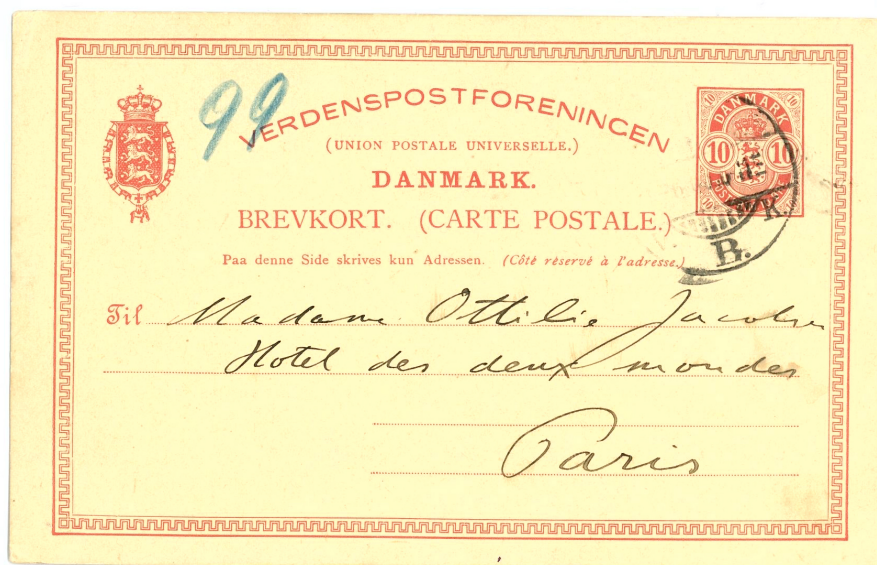 99
VERDENSPOSTFORENINGEN
(UNION POSTALE UNIVERSELLE.)
DANMARK.
BREVKORT. (CARTE POSTALE.)
Paa denne Side skrives kun Adressen. (Côté réservé à l'adresse.)
DANMARK
10 10
10 10
10 10
K.
B.
Til Madame Ottilie Jacobsen
Hotel des deux mondes
Paris